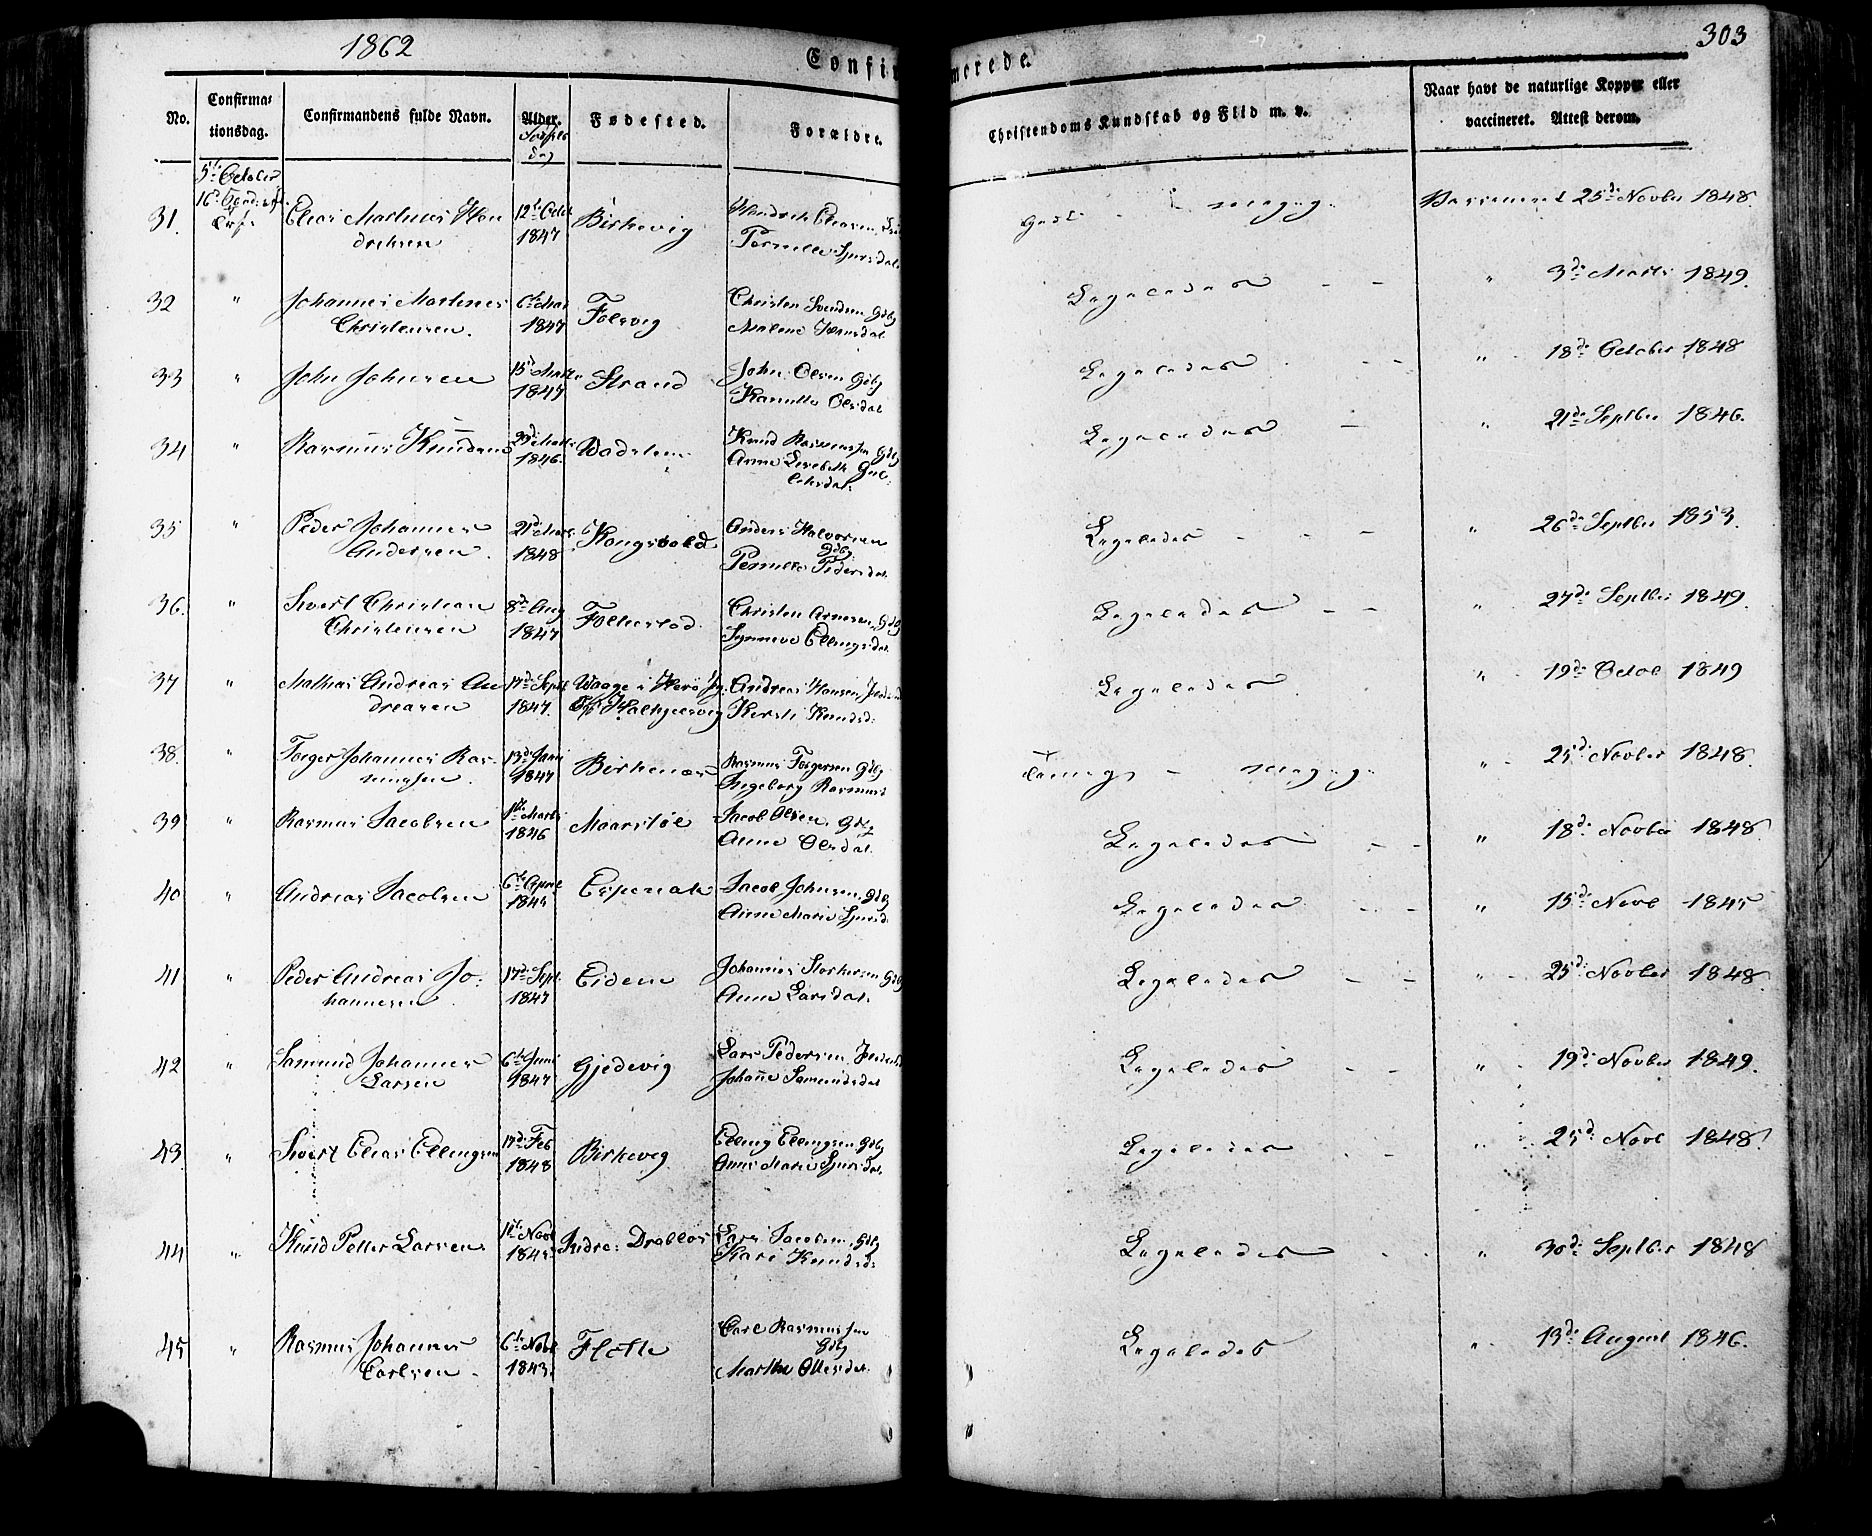 1862
Confirmerede.
303
No.
Confirma-
tionsdag.
Confirmandens fulde Navn.
Alder.
Fødested.
Forældre.
Christendoms Kundskab og Flid m. v.
Naar havt de naturlige Kopper eller
vaccineret. Attest derom.
5te October
31. Elias Martinus Hen
dricksen
12te Octb
1847
Birkevig
Pernille Sjursdat.
Godt - meget
Vaccineret 25de Novber 1848
32 " Johannes Martinus
Christensen.
6te Mai
1847
Folsvig
Christen Svendsen Gdbg
Malene Hansdat.
Ligeledes - - " 3de Marts 1849.
33 " John Johnsen
15de Marts
1847
Strand
John Olsen Gdbg
Karnille Olsdat
Ligeledes - - " 18de October 1848
34 " Rasmus Knudsen
1846.
Knud Rasmussen Gdbg
Anne Lisebeth
Ligeledes - " 21de Septber 1846.
35 " Peder Johannes
Andersen.
21de Marts
1848
Kongsvold
Anders Halvorsen
Gdbg
Pernille Pedersdat
Ligeledes - - - " 26de Septber 1853.
36. " Sivert Christian
Christensen
8de Aug
1847
Follestad
Christen Arnesen Gdbg
Synneve Ellingsdat.
Ligeledes - - " 27de Septber 1849.
37 " Mathias Andreas An
dreasen
17de Septb
1847.
Waage i Herø
Andreas Hansen
Kirsti Knudsd:
Ligeledes " 19de Octob 1849
38. " Torger Johannes Ras
mussen.
13de Juni
1847
Birkenæs
Rasmus Torgersen Gdbg
Ingeborg Rasmusd
- meget " 25de Novber 1848.
39 " Rasmus Jacobsen
1ste Marts
1846
Maarstøl
Jacob Olsen Gdbg
Anne Olsdat.
Ligeledes - - " 18de Novber 1848
40 " Andreas Jacobsen
6te April
1845
Espenak
Jacob Johnsen Gdbg
Anne Marie Sjursd.
Ligeledes - - " 15de Novb 1845
41 " Peder Andreas Jo-
hannesen
17de Sept.
1847
Eidem
Johannes Gdbg
Anne Larsdat.
Ligeledes - - " 25de Novber 1848.
42 " Samund Johannes
Larsen
6te Juni
1847
Gjedevig
Lars Pedersen
Johanne Samundsdat
Ligeledes - - " 19de Novber 1849.
43. " Sivert Elias Ellingsen
17de Feb
1848
Birkevig
Elling Ellingsen Gdbg
Anne Marie Sjursdat.
Ligeledes - - " 25de Novb 1848.
44 " Knud Petter Larsen
1845
Indre Drabløs
Lars Jacobsen Gdbg
Kari Knudsd:
Ligeledes - - " 30de Septber 1848
45 " Rasmus Johannes
Carlsen
6te Novb
1843.
Fløtte
Carl Rasmussen
Gdbg
Marthe Ottersdat.
Ligeledes " 13de August 1846.